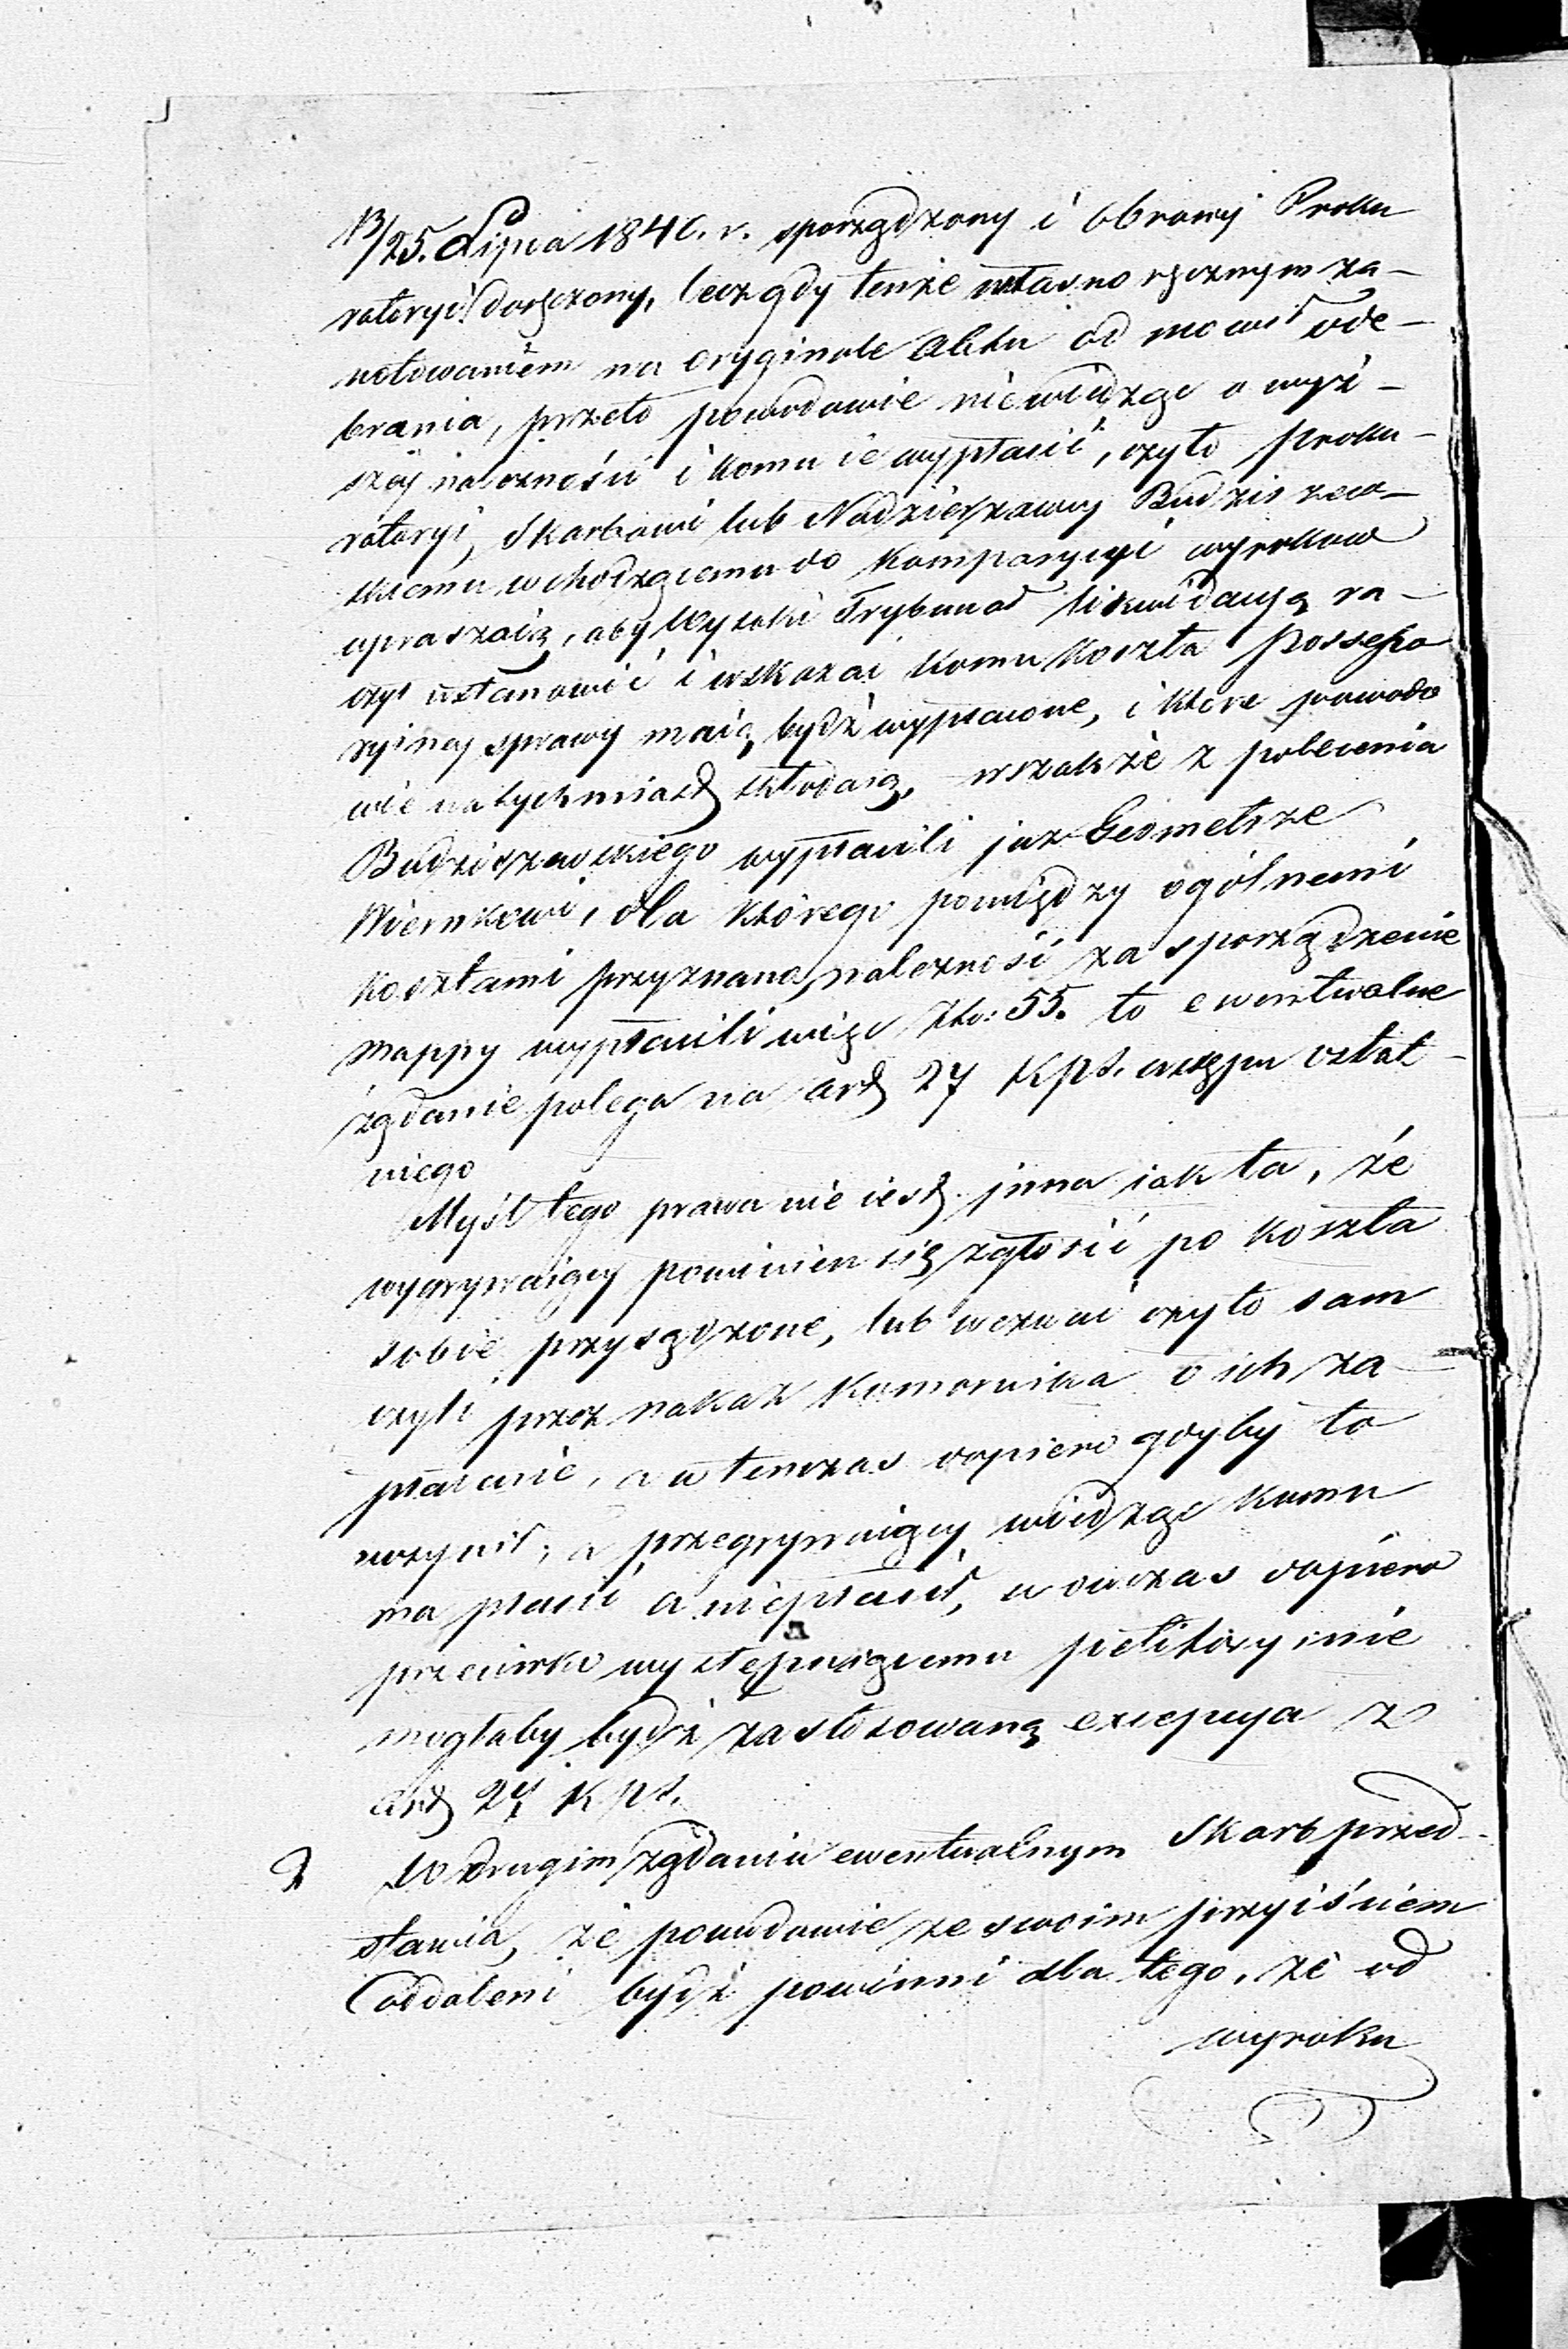 13/25. Lipca 1840. r. sporządzony i obrony Proku
ratoryi doręczony, lecz gdy tenże własno ręcznym za-
notowaniem na oryginale Aktu od mowił ode-
brania, przeto powodowie niewiedząc o wyż-
szej należności i komu ie wypłacić, czyto Proku-
ratoryi, Skarbowi lub Nadzierżawcy Budziszew-
skiemu wchodzącemu do Kompanycyi wyroków
upraszaią, aby Wysoki Trybunał likwidacyą ra-
czył ustanowić i wskazać komu koszta Possesso
ryinej sprawy maią bydź wypłacone, i które powodo
wie natychmiast składaią, wszakże z polecenia
Budziszewskiego wypłacili już Geometrze
Wiernikowi, dla którego pomiędzy ogólnemi
kosztami przyznano należność za sporządzenie
mappy wypłacili więc Złp: 55. to ewentualne
żądanie polega na art 27 Kps. ustępu ostat-
niego
Myśl tego prawa nie iest inna iak ta, że
wygrywaiący powinien się zgłosić po koszta
sobie przysądzone, lub wezwać czyto sam
czyli przez nakaz Komornika o ich za-
płacenie, a w tenczas dopiero gdyby to
uczynił, a przegrywaiący wiedząc komu
ma płacić a niepłacił, w ówczas dopiero
przeciwko występuiącemu petitoryinie
mogłaby bydź zastosowaną excepcya z
art 27 Kps.
2 W drugim żądaniu ewentualnym Skarb przed-
stawia, że powodowie ze swoim przyiściem
oddaleni bydź powinni dla tego, że od
wyroku